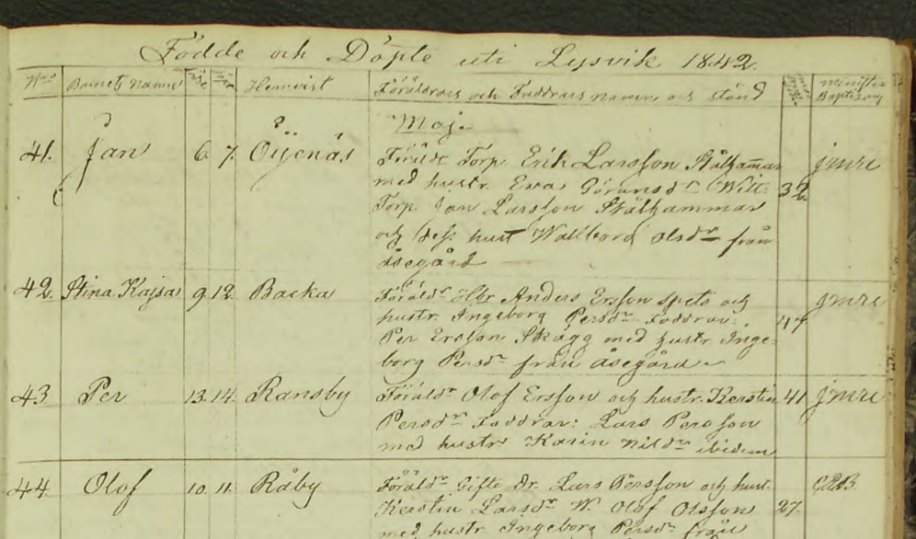 Födde och Döpte uti Lysvik 1842.
Barnets Namn Hemvist Föräldrars och Faddrars namn och stånd Minister Baptismi
Maj.
41. Jan 6. 7. Öijenäs Föräldr Torp. Erik Larsson Stålhammar jmre
med hustr. Eva Göransdr Witt: 32
Torp. Jan Larsson Stålhammar
och dess hust Wallborg Olsdr från
åsegård
42. Stina Kajsa 9. 12. Backa Föräldr Anders Ersson spets och jmre
hustr. Ingeborg Persdr Faddrar: 47
Per Ersson Skägg med hustr. Inge-
borg Persdr från åsegård
43 Per 13. 14. Ransby Föräldr Olof Ersson och hustr. Kerstin 41 jmre
Persdr Faddrar: Lars Persson
med hustr Karin Nilsdr ibidem
44. Olof 10. 11. Råby Föräldr Gifte Dr. Lars Persson och hust.
Kerstin Larsdr W. Olof Olsson 27.
med hustr Ingeborg Persdr från